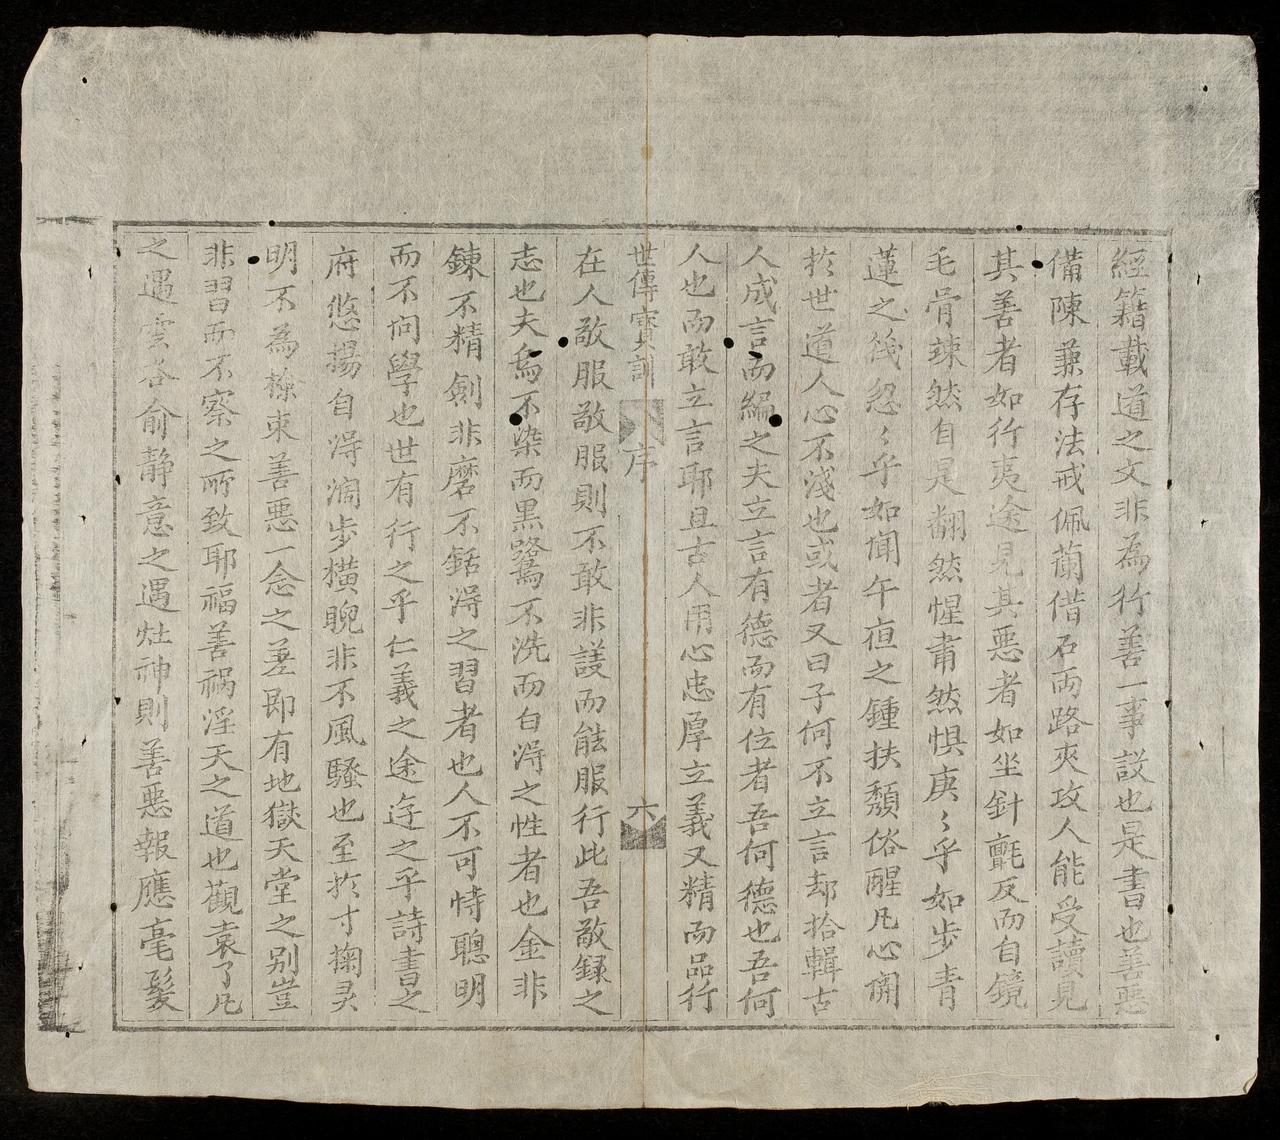 經籍載道之文非為行善一事設也是書也善惡
備陳兼存法戒佩蘭借石兩路夾攻人能受讀見
其善者如行夷途見其惡者如坐針氈反而自鏡
毛骨竦然自是翻然惺肅然惧庚〻乎如步青
蓮之後忽〻乎如聞午夜之鍾扶頹俗醒凡心開
扵世道人心不淺也或者又曰子何不立言却拾輯古
人成言而編之夫立言有德而有位者吾何德也吾何
人也而敢立言耶且古人用心忠厚立義又精而品行
世傳寶訓 序 六
在人敬服敬服則不敢非議而能服行此吾敬録之
志也夫烏不染而黒鷺不洗而白淂之性者也金非
鍊不精劍非磨不銛淂之習者也人不可恃聰明
而不向學也世有行之乎仁義之途迬之乎詩書之
府悠揚自淂濶步橫睨非不風騷也至扵寸掬灵
明不為檢束善惡一念之差即有地獄天堂之别豈
非習而不察之所致耶福善禍淫天之道也觀袁了凡
之遇雲谷俞静意之遇灶神則善惡報應毫髮